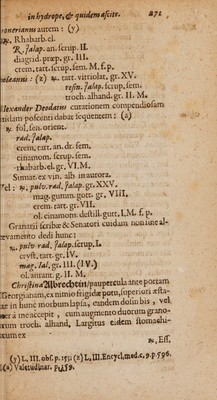 in hydrope, & quidem ascite. 271
onerianus autem: (y)
℞. Rhabarb. el.
R. Jalap. an. scrup. II.
diagrid. præp. gr. III.
crem. tart. scrup. sem. M. f. p.
(z) ℞. tart. vitriolat. gr. XV.
resin. Jalap. scrup. sem.
troch. alhand. gr. II. M.
Alexander Deodatus curationem compendiosam
cuidam poscenti dabat sequentem: (a)
℞. fol. sen. orient.
rad. Jalap.
crem. tart. an. dr. sem.
cinamom. scrup. sem.
rhabarb. el. gr. VI. M.
Sumat. ex vin. alb. in aurora.
Vel: ℞. pulv. rad. Jalap. gr. XXV.
mag. gumm. gott. gr. VIII.
crem. tart. gr. VII.
ol. cinamom. destill. gutt. I. M. f. p.
Granatii scribæ & Senatori cuidam non ine al-
levamento dedi hunc:
℞. pulv. rad. Jalap. scrup. I.
cryst. tart. gr. IV.
mag. Jal. gr. III. (IV.)
ol. aurant. g. II. M.
Christina Albrechtin / paupercula ante portam
Georgianam, ex nimio frigidæ potu, superiori æsta-
te in hunc morbum lapsa, eandem dosin bis, vel
ter à me accepit, cum augmento duorum grano-
rum troch. alhand. Largitus eidem stomachi-
cum ex
℞. Ess.
(y) L. III. obs. p. 151. (z) L. III. Encycl. med. c. 9. p. 596.
(a) Valetudinar. p. 159.